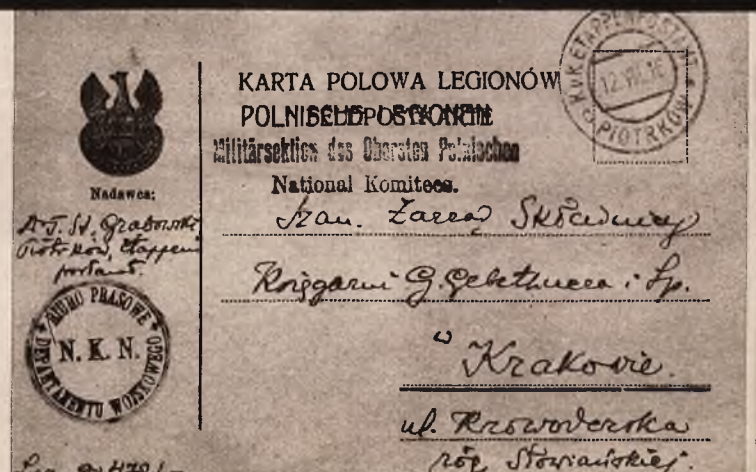 KARTA POLOWA LEGIONÓW
POLNISCHE LEGIONEN
FELDPOSTKARTE
Militärsektion des Obersten Polnischen
National Komitees.
K.u.K. ETAPPENPOSTAMT
12.VII.16
PIOTRKÓW
Nadawca:
Dr T. St. Grabowski
Piotrków, Etappen
postamt.
BIURO PRASOWE
DEPARTAMENTU WOJSKOWEGO
N. K. N.
Szan. Zarząd Składnicy
Księgarni G. Gebethnera i Sp.
w
Krakowie.
ul. Krowoderska
róg Słowiańskiej.